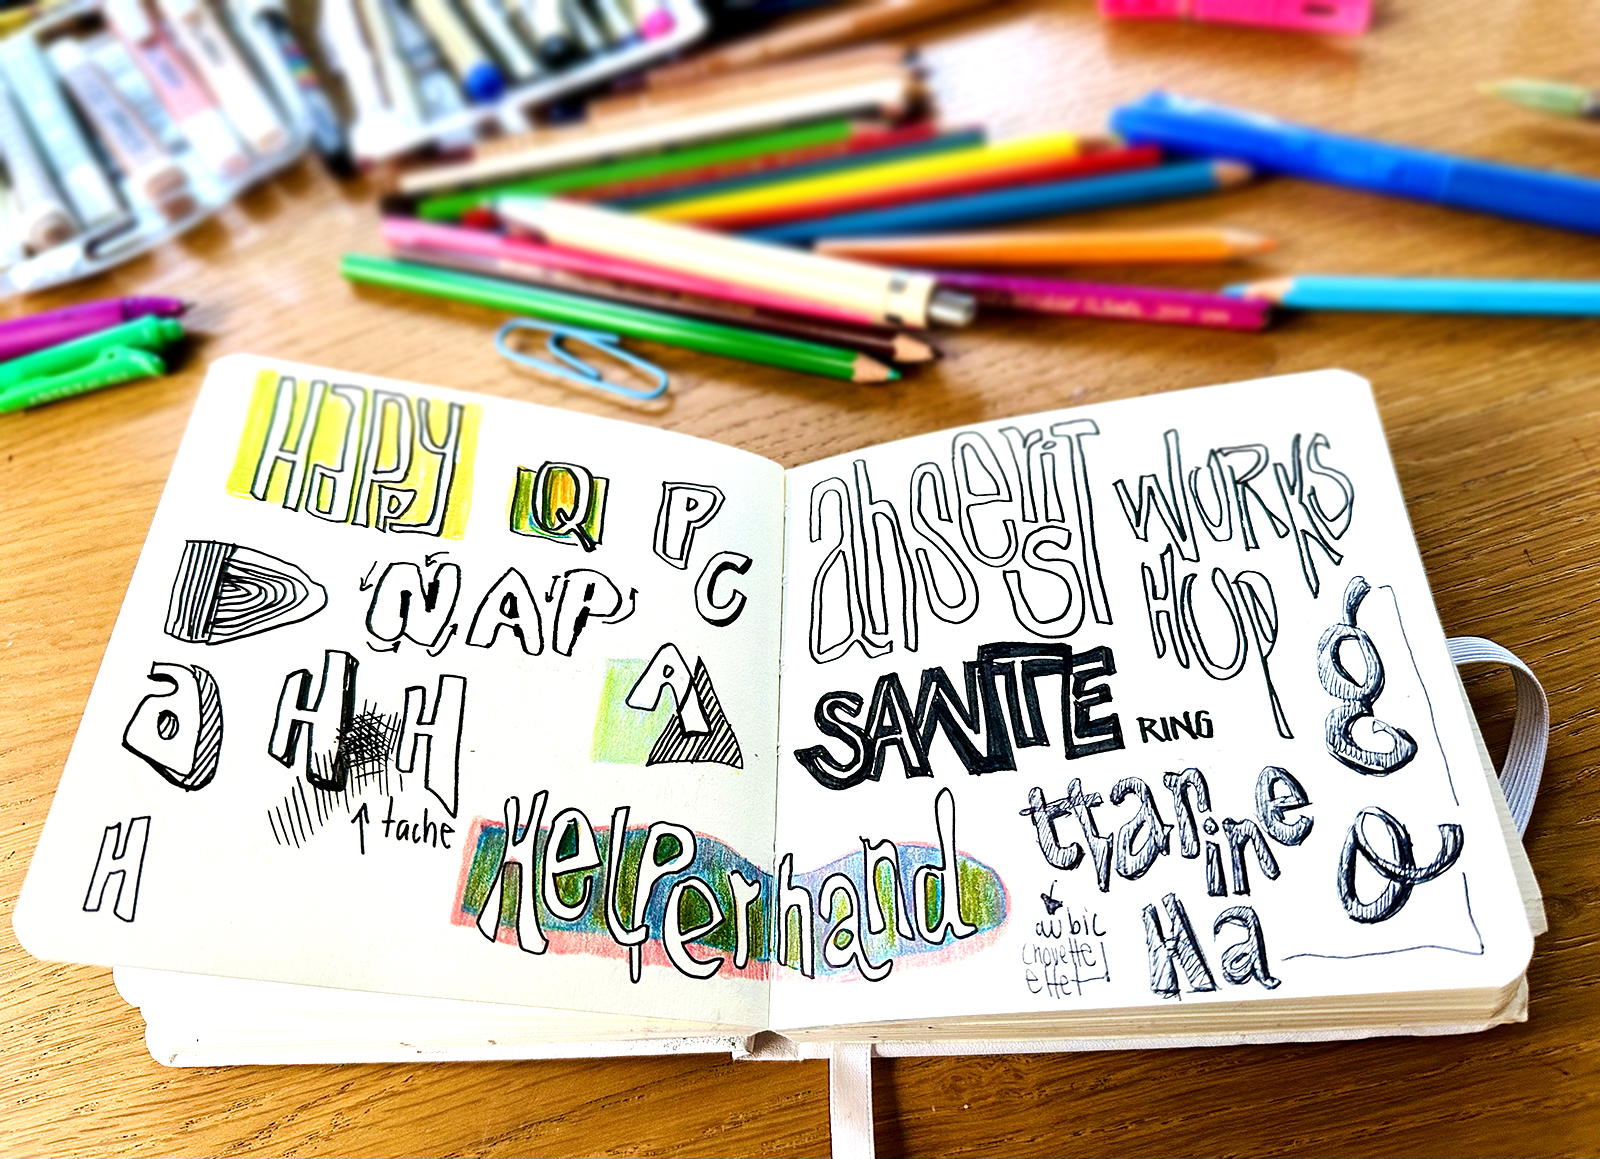 Happy
Q
P
C
D
NAP
a
H H
A
tache
H
Helper hand
WORKS
HUP
SANTE
RING
g
au bic
chouette
effet!
Ha